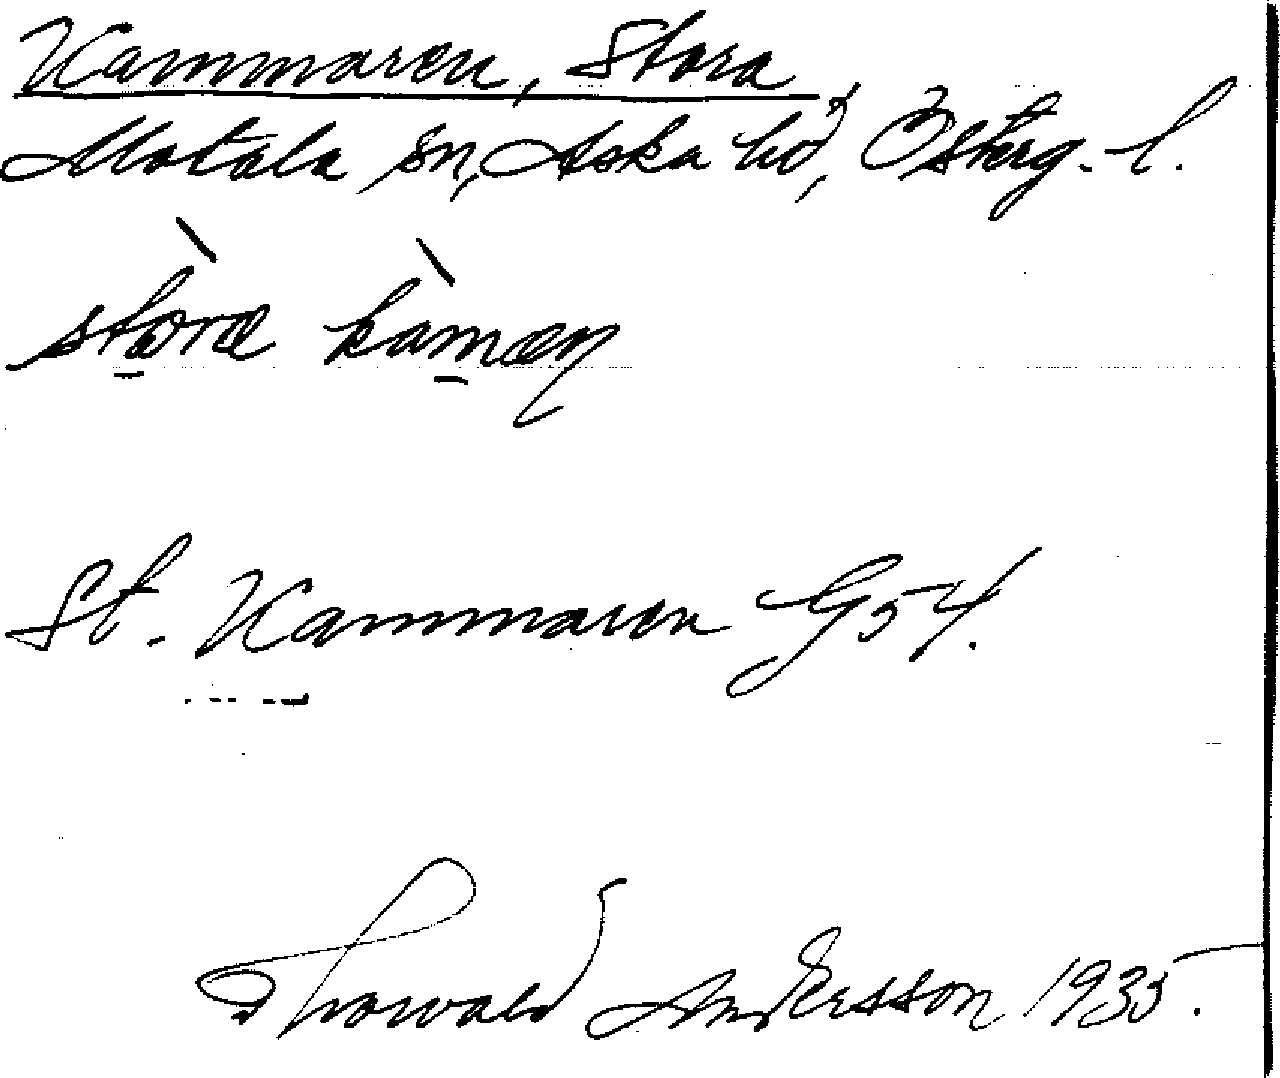 Kammaren, Stora
Motala sn, Aska hd, Österg. l.
stòra kàmaŋ
St. Kammaren G54.
Thorwald Andersson 1935.